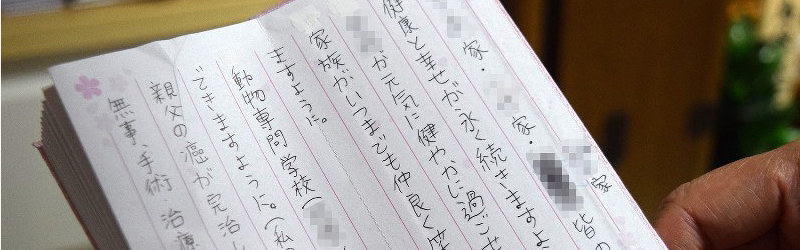 家・家・家 皆の
健康と幸せが永く続きますよ
が元気に健やかに過ごせ
家族がいつまでも仲良く笑
ますように。
動物専門学校(
できますように。(私
親父の癌が完治
無事、手術・治療